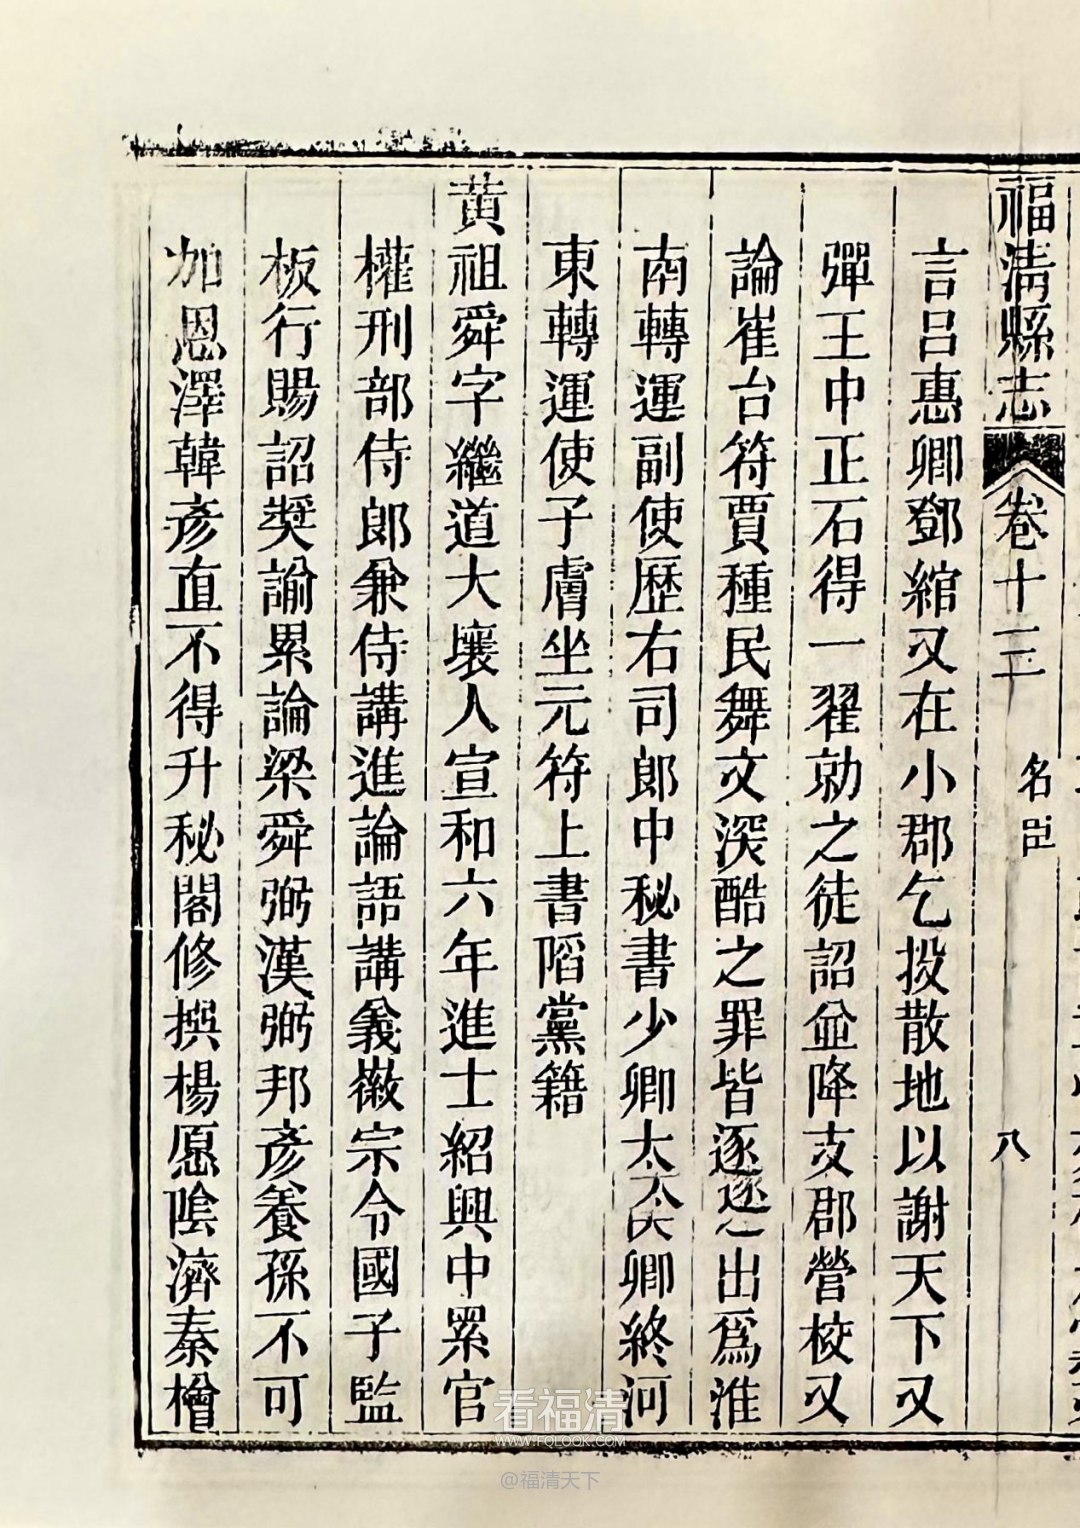 福清縣志
卷十三
名臣
八
言吕惠卿鄧綰又在小郡乞投散地以謝天下又
彈王中正石得一翟勍之徒詔並降支郡營校又
論崔台符賈種民舞文深酷之罪皆逐之出爲淮
南轉運副使歴右司郎中秘書少卿太夫卿終河
東轉運使子膚坐元符上書䧟黨籍
黄祖舜字繼道大壤人宣和六年進士紹興中累官
權刑部侍郎兼侍講進論語講義徽宗令國子監
板行賜詔奬諭累論梁舜弼漢弼邦彦養孫不可
加恩澤韓彦直不得升秘閣修撰楊愿陰濟秦檜
看福清
WWW.FQLOOK.COM
@福清天下